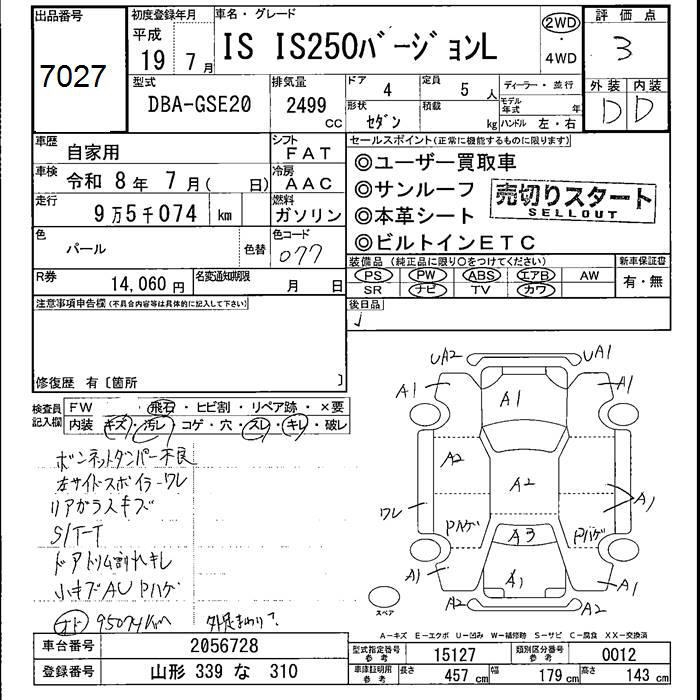 出品番号
7027
初度登録年月
平成
19 年 7 月
車名・グレード
IS IS250バージョンL
2WD
・
4WD
評価点
3
外装 内装
D D
型式
DBA-GSE20
排気量
2499 CC
ドア
4
定員
5 人
形状
セダン
積載
kg
ディーラー・並行
モデル年式 年
ハンドル 左・右
車歴
自家用
シフト
FAT
車検
令和 8年 7月( 日)
冷房
AAC
走行
9万5千074 km
燃料
ガソリン
色
パール
色替
色コード
077
R券
14,060 円
名変通知期限
月 日
セールスポイント(正常に機能するものに限ります)
◎ユーザー買取車
◎サンルーフ
◎本革シート
◎ビルトインETC
売切りスタート
SELLOUT
装備品 (純正品に限り○をつけてください)
PS PW ABS エアB AW
SR ナビ TV カワ
新車保証書
有・無
後日品
注意事項申告欄(不具合内容等は具体的に記入して下さい)
修復歴 有〔箇所 〕
検査員記入欄
FW 飛石・ヒビ割・リペア跡・×要
内装 キズ・汚レ・コゲ・穴・スレ・キレ・破レ
ボンネットダンパー不良
左サイドスポイラーワレ
リアガラスキズ
S/T-T
ドアトリム割れキレ
小キズAU Pハゲ
オド 95074km
UA2 UA1
A1 A1
A1
A2
A2
ワレ
A1
Pハゲ Pハゲ
A3
A1 A1 A1
A2 A2
スペア
A-キズ E-エクボ U-凹み W-補修跡 S-サビ C-腐食 XX-交換済
車台番号
2056728
登録番号
山形 339 な 310
型式指定番号
参考
15127
類別区分番号
参考
0012
車庫証明用
参考
長さ 457 cm
幅 179 cm
高さ 143 cm